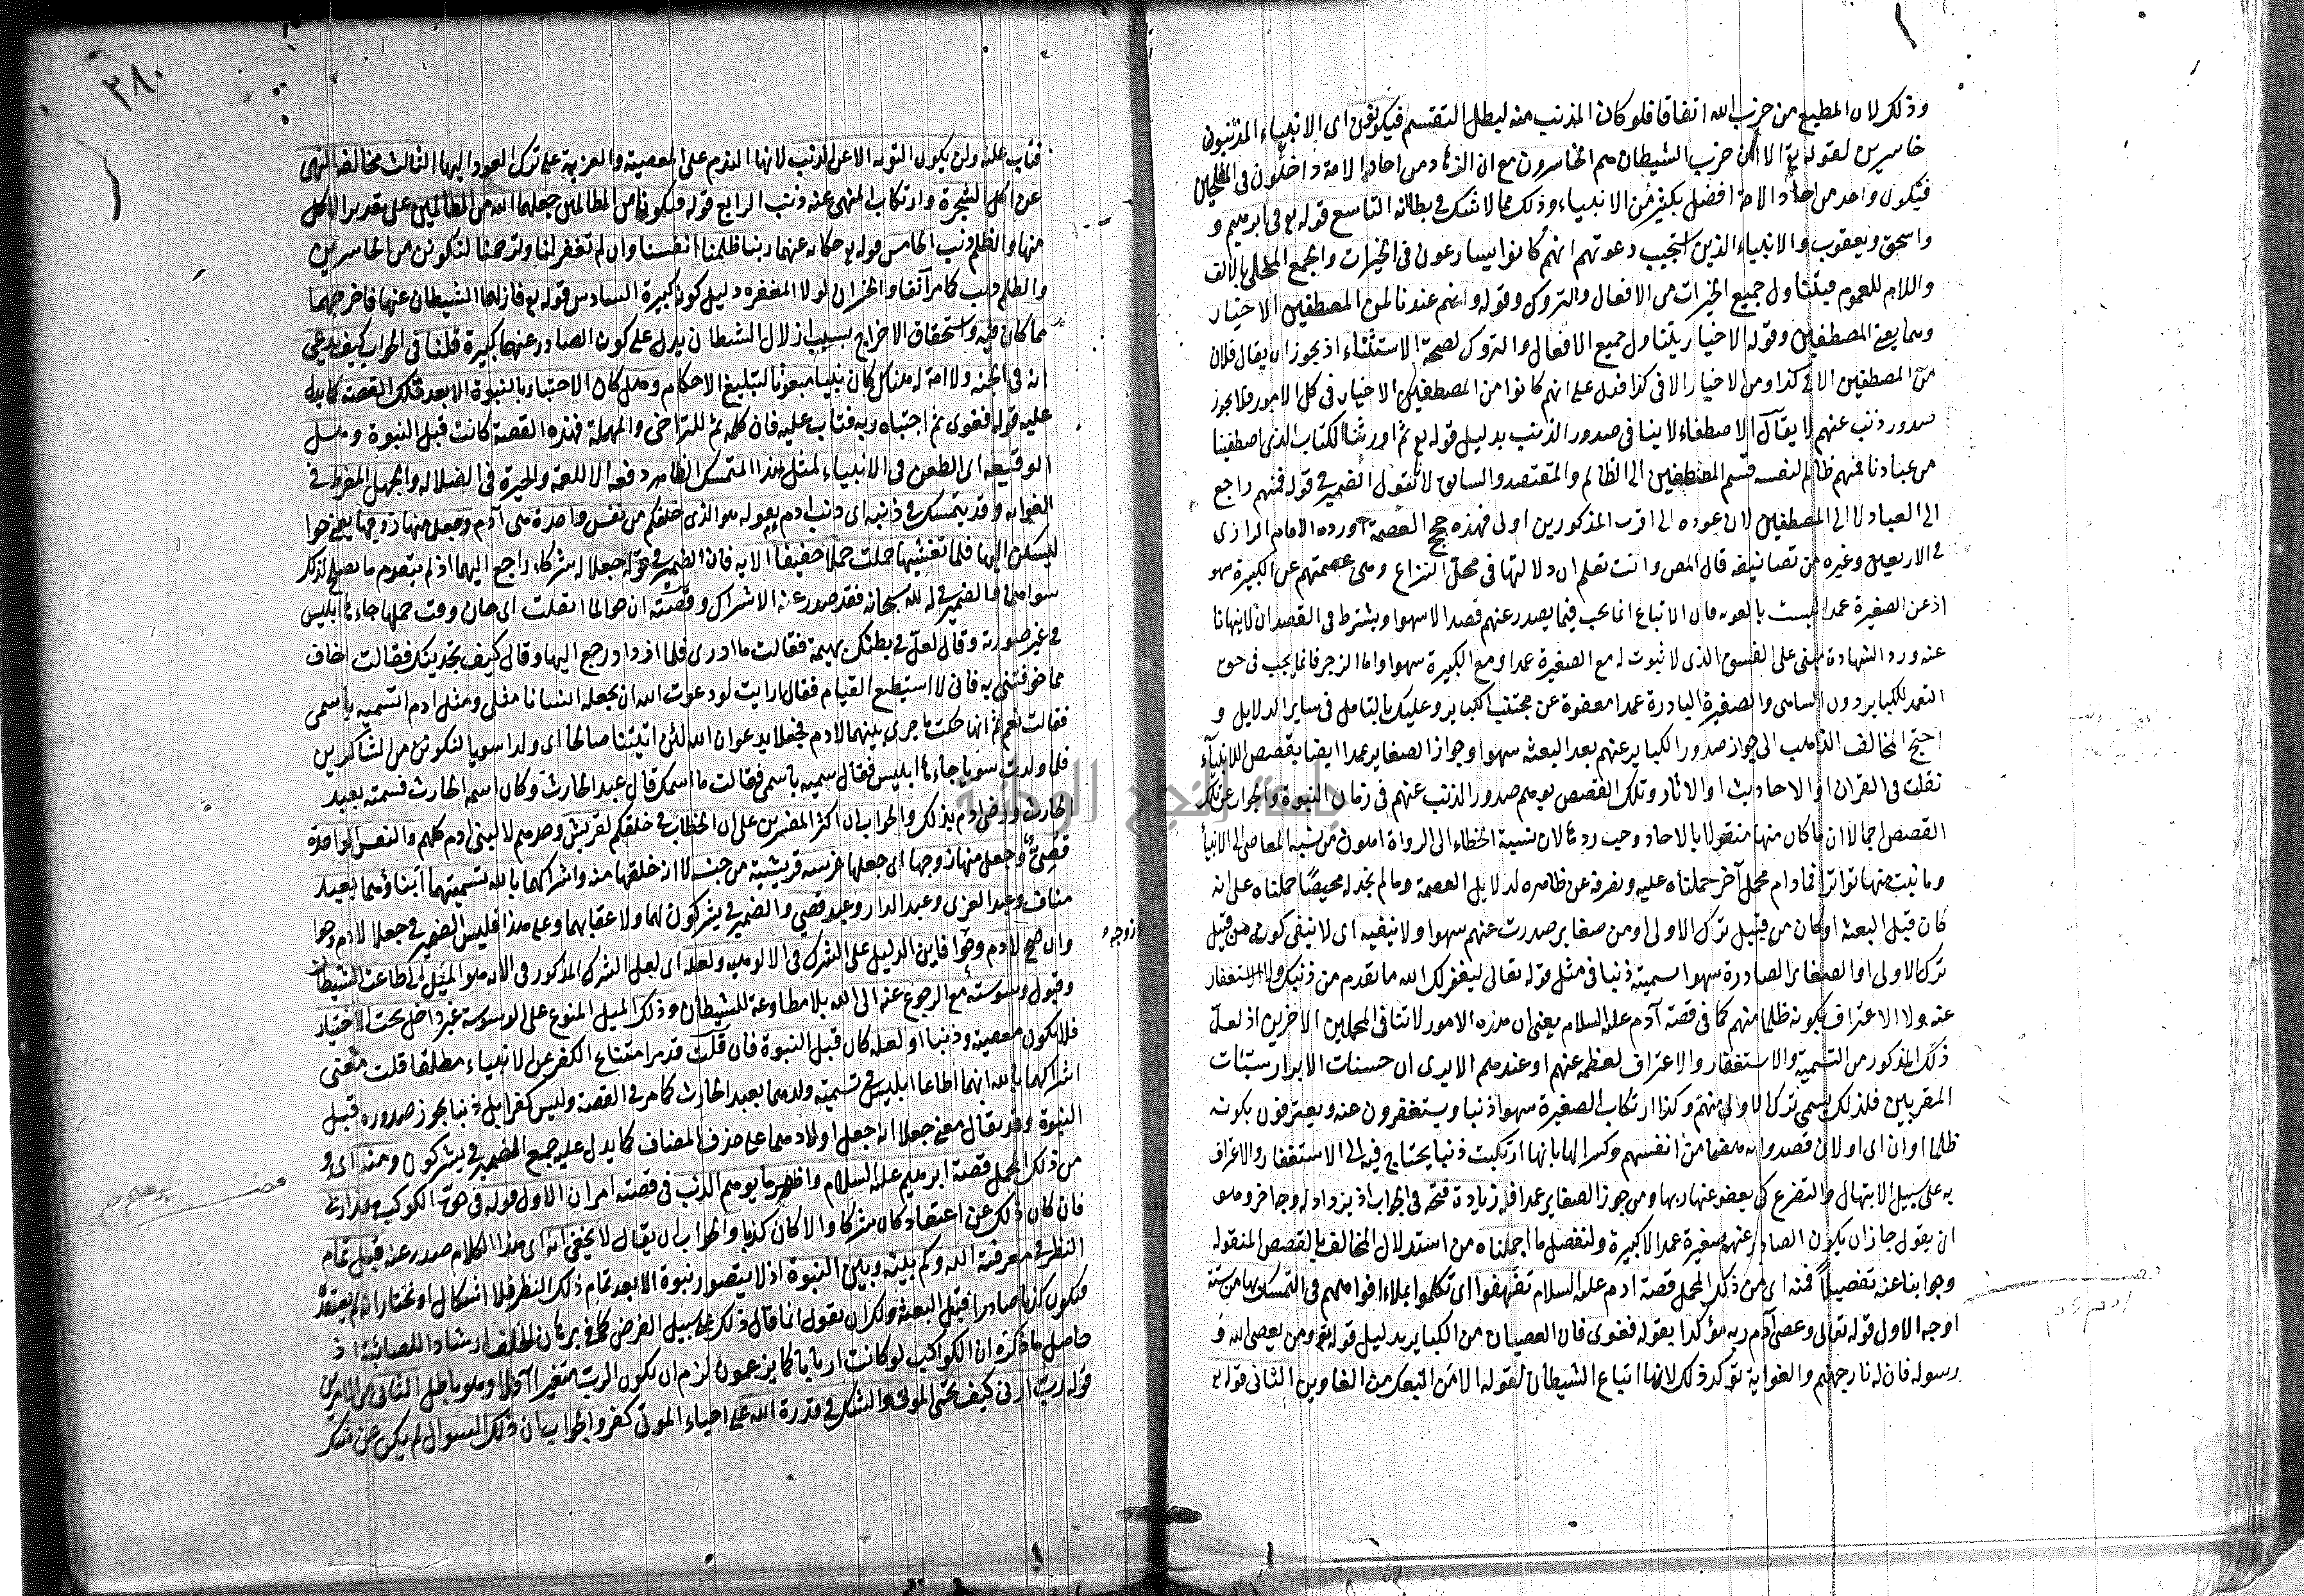 وذلك لان المطيع من حزب الله اتفاقا فلو كان المذنب منه لبطل التقسيم فيكون اى الانبياء المذنبون
خاسرين لقوله تع الا ان حزب الشيطان هم الخاسرون مع ان الزهاد من احاد الامة داخلون فى المفلحين
فيكون واحد من احاد الامة افضل بكثير من الانبياء وذلك مما لا شك فى بطلانه التاسع قوله تع فى ابرهيم و
واسحق ويعقوب والانبياء الذين استجيب دعوتهم انهم كانوا يسارعون فى الخيرات والجمع المحلى بالالف
واللام للعموم فيتناول جميع الخيرات من الافعال والتروك وقوله وانهم عندنا لمن المصطفين الاخيار
وهما يعنى المصطفين وقوله الاخيار يتناول جميع الافعال والتروك لصحة الاستثناء اذ يجوز ان يقال فلان
من المصطفين الا فى كذا ومن الاخيار الا فى كذا فدل على انهم كانوا من المصطفين الاخيار فى كل الامور فلا يجوز
صدور ذنب عنهم لا يقال الاصطفاء لا ينافى صدور الذنب بدليل قوله تع ثم اورثنا الكتاب الذين اصطفينا
من عبادنا فمنهم ظالم لنفسه فقسم المصطفين الى الظالم والمقتصد والسابق لانا نقول الضمير فى قوله فمنهم راجع
الى العباد لا الى المصطفين لان عوده الى اقرب المذكورين اولى فهذه حجج العصمة اورده الامام الرازى
فى الاربعين وغيره من تصانيفه قال المص وانت تعلم ان دلالتها فى محل النزاع وهى عصمتهم عن الكبيرة سهوا
اذ عن الصغيرة عمدا ليست بالقويه فان الاتباع انما يجب فيما يصدر عنهم قصدا لا سهوا ويشترط فى القصد ان لا ينهانا
عنه ورد الشهادة مبنى على الفسق الذى لا ثبوت له مع الصغيرة عمدا ومع الكبيرة سهوا واما الزجر فانما يجب فى حق
المتعمد للكباير دون الساهى والصغيرة النادرة عمدا معفوة عن مجتنب الكباير وعليك بالتامل فى ساير الدلايل و
احتج المخالف الذاهب الى جواز صدور الكباير عنهم بعد البعثه سهوا وجواز الصغاير عمدا ايضا بقصص للانبياء
نقلت فى القران او الاحاديث او الاثار وتلك القصص يوهم صدور الذنب عنهم فى زمان النبوة والجواب عن تلك
القصص اجمالا ان ما كان منها منقولا بالاحاد وجب ردها لان نسبة الخطاء الى الرواة اهون من نسبة المعاصى الى الانبياء
وما ثبت منها تواترا فما دام له محمل آخر حملناه عليه ونصرفه عن ظاهره لدلايل العصمة وما لم نجد له محيصا حملناه على انه
كان قبل البعثه او كان من قبيل ترك الاولى او من صغاير صدرت عنهم سهوا ولا ينفيه اى لا ينفى كونه من قبيل
ترك الاولى او الصغاير الصادرة سهوا تسميته ذنبا فى مثل قوله تعالى ليغفر لك الله ما تقدم من ذنبك ولا الاستغفار
عنه ولا الاعتراف بكونه ظلما منهم كما فى قصة آدم عليه السلام يعنى ان هذه الامور لا تنافى المحملين الاخرين اذ لعل
ذلك المذكور من التسمية والاستغفار والاعتراف لعظمه عنهم او عندهم الا يرى ان حسنات الابرار سيئات
المقربين فلذلك يسمى ترك الاولى منهم وكذا ارتكاب الصغيرة سهوا ذنبا ويستغفرون عنه ويعترفون بكونه
ظلما او ان اى اولان قصدوا به هضما من انفسهم وكسرا لها بانها ارتكبت ذنبا يحتاج فيه الى الاستغفار والاعتراف
به على سبيل الابتهال والتضرع كى يعفو عنها ربها ومن جوز الصغاير عمدا فله زيادة فسحة فى الجواب اذ يزداد له وجه اخر وهو
ان يقول جاز ان يكون الصادر عنهم صغيرة عمدا لا كبيرة ولنفصل ما اجملناه من استدلال المخالف بالقصص المنقوله
وجوابنا عنه تفصيلا فمنه اى من ذلك المجمل قصة ادم عليه السلام تفيهقوا اى تكلموا بملاء افواههم فى التمسك بها من ستة
اوجه الاول قوله تعالى وعصى آدم ربه مؤكدا بقوله فغوى فان العصيان من الكباير بدليل قوله تع ومن يعصى الله و
رسوله فان له نار جهنم والغواية تؤكد ذلك لانها اتباع الشيطان لقوله الا من اتبعك من الغاوين الثانى قوله تع
قصة
ادم عم
٢٨٠
فتاب عليه ولن يكون التوبه الا عن الذنب لانها الندم على المعصية والعزيمة على ترك العود اليها الثالث مخالفه النهى
عن اكل الشجرة وارتكاب المنهى عنه ذنب الرابع قوله فتكونا من الظالمين جعلهما الله من الظالمين على تقدير الاكل
منها والظلم ذنب الخامس قوله تع حكاية عنهما ربنا ظلمنا انفسنا وان لم تغفر لنا وترحمنا لنكونن من الخاسرين
والظلم ذنب كما مر آنفا والخسران لولا المغفره دليل كونه كبيرة السادس قوله تع فازلهما الشيطان عنها فاخرجهما
مما كانا فيه واستحقاق الاخراج بسبب ازلال الشيطان يدل على كون الصادر عنهما كبيرة قلنا فى الجواب كيف يدعى
انه فى الجنه ولا امة له هناك كان نبيا مبعوثا لتبليغ الاحكام وهل كان الاجتباء بالنبوة الا بعد تلك القصة كما يدل
عليه قوله فغوى ثم اجتباه ربه فتاب عليه فان كلمه ثم للتراخى والمهلة فهذه القصة كانت قبل النبوة وهل
الوقيعه اى الطعن فى الانبياء لمثل هذا المتمسك الظاهر دفعه الا للعمه والحيرة فى الضلاله والجهل المفرط فى
الغوايه وقد يتمسك فى ذنبه اى ذنب ادم بقوله هو الذى خلقكم من نفس واحدة هى آدم وجعل منها زوجها يعنى حوا
ليسكن اليها فلما تغشيها حملت حملا خفيفا الايه فان الضمير فى قوله جعلا له شركاء راجع اليهما اذ لم يتقدم ما يصلح لذلك
سواهما والضمير فى له لله سبحانه فقد صدر عنه الاشراك وقصته ان حوا لما اثقلت اى حان وقت حملها جاءها ابليس
فى غير صورته وقال لعل فى بطنك بهيمة فقالت ما ادرى فلما ازداد رجع اليها وقال كيف تجدينك فقالت اخاف
مما خوفتنى به فانى لا استيطع القيام فقال ارايت لو دعوت الله ان يجعله انسانا مثلى ومثل ادم اتسميه باسمى
فقالت نعم ثم انها حكت ما جرى بينهما لادم فجعلا يدعوان الله لئن اتيتنا صالحا اى ولدا سويا لنكونن من الشاكرين
فلما ولدت سويا جاءها ابليس فقال سميه باسمى فقالت ما اسمك قال عبد الحارث وكان اسمه الحارث فسمته بعبد
الحارث ورضى ادم بذلك والجواب ان اكثر المفسرين على ان الخطاب فى خلقكم لقريش وحدهم لا لبنى ادم كلهم والنفس الواحدة
قصى وجعل منها زوجها اى جعلها عربيه قريشية من جنسه لا انه خلقها منه واشراكهما بالله تسميتهما ابناؤهما بعبد
مناف وعبد العزى وعبد الدار وعبد قصى والضمير فى يشركون لهما ولاعقابهما وعلى هذا فليس الضمير فى جعلا لادم وحوا
زوجه
وان صح لادم وحوا فاين الدليل على الشرك فى الالوهيه ولعله اى لعل الشرك المذكور فى الايه هو الميل الى طاعة الشيطان
وقبول وسوسته مع الرجوع عنه الى الله بلا مطاوعة للشيطان وذلك الميل المتنوع على الوسوسة غير داخل تحت الاختيار
فلا يكون معصية وذنبا او لعله كان قبل النبوة فان قلت قد مر امتناع الكفر على الانبياء مطلقا قلت معنى
اشراكهما بالله انهما اطاعا ابليس فى تسمية ولدهما بعبد الحارث كما مر فى القصة وليس كفرا بل ذنبا يجوز صدوره قبل
النبوة وقد يقال معنى جعلا انه جعل اولادهما على حذف المضاف كما يدل عليه جمع الضمير فى يشركون ومنه اى و
من ذلك المجمل قصة ابرهيم عليه السلام واظهر ما يوهم الذنب فى قصته امران الاول قوله فى حق الكوكب هذا ربى
فان كان ذلك عن اعتقاد كان مشركا والا كان كذبا والجواب ان يقال لا يخفى انه اى هذا الكلام صدر عنه قبل تمام
النظر فى معرفة الله وكم بينه وبين النبوة اذ لا يتصور نبوة الا بعد تمام ذلك النظر فلا اشكال او نختار انه لم يعتقد
فيكون كذبا صادرا قبل البعثه ولكن ان يقول انما قال ذلك على سبيل الفرض كما فى برهان الخلف ارشادا للصابئة اذ
حاصل ما ذكره ان الكواكب لو كانت اربابا كما يزعمون لزم ان يكون الرب متغيرا آفلا وهو باطل الثانى من الامرين
قوله رب ارنى كيف تحى الموتى والشك فى قدرة الله على احياء الموتى كفر والجواب ان ذلك السوال لم يكن عن شك
قصه
ابرهيم عم